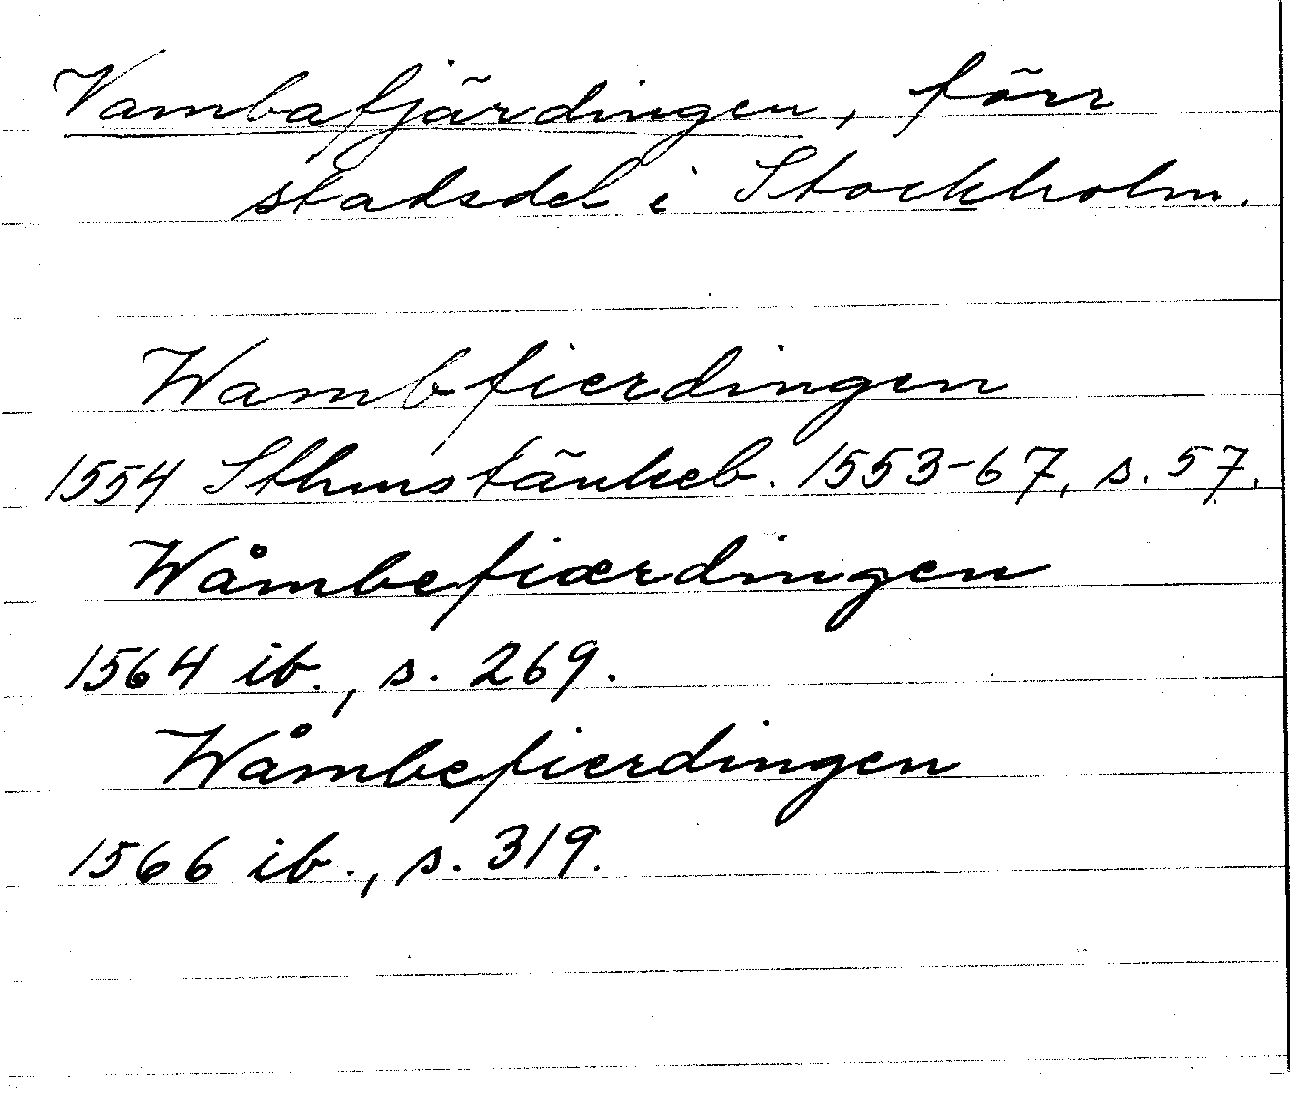 Vambafjärdingen, förr
stadsdel i Stockholm.
Wambfierdingen
1554 Sthmstänkeb. 1553-67, s. 57.
Wåmbefiærdingen
1564 ib., s. 269.
Wåmbefierdingen
1566 ib., s. 319.